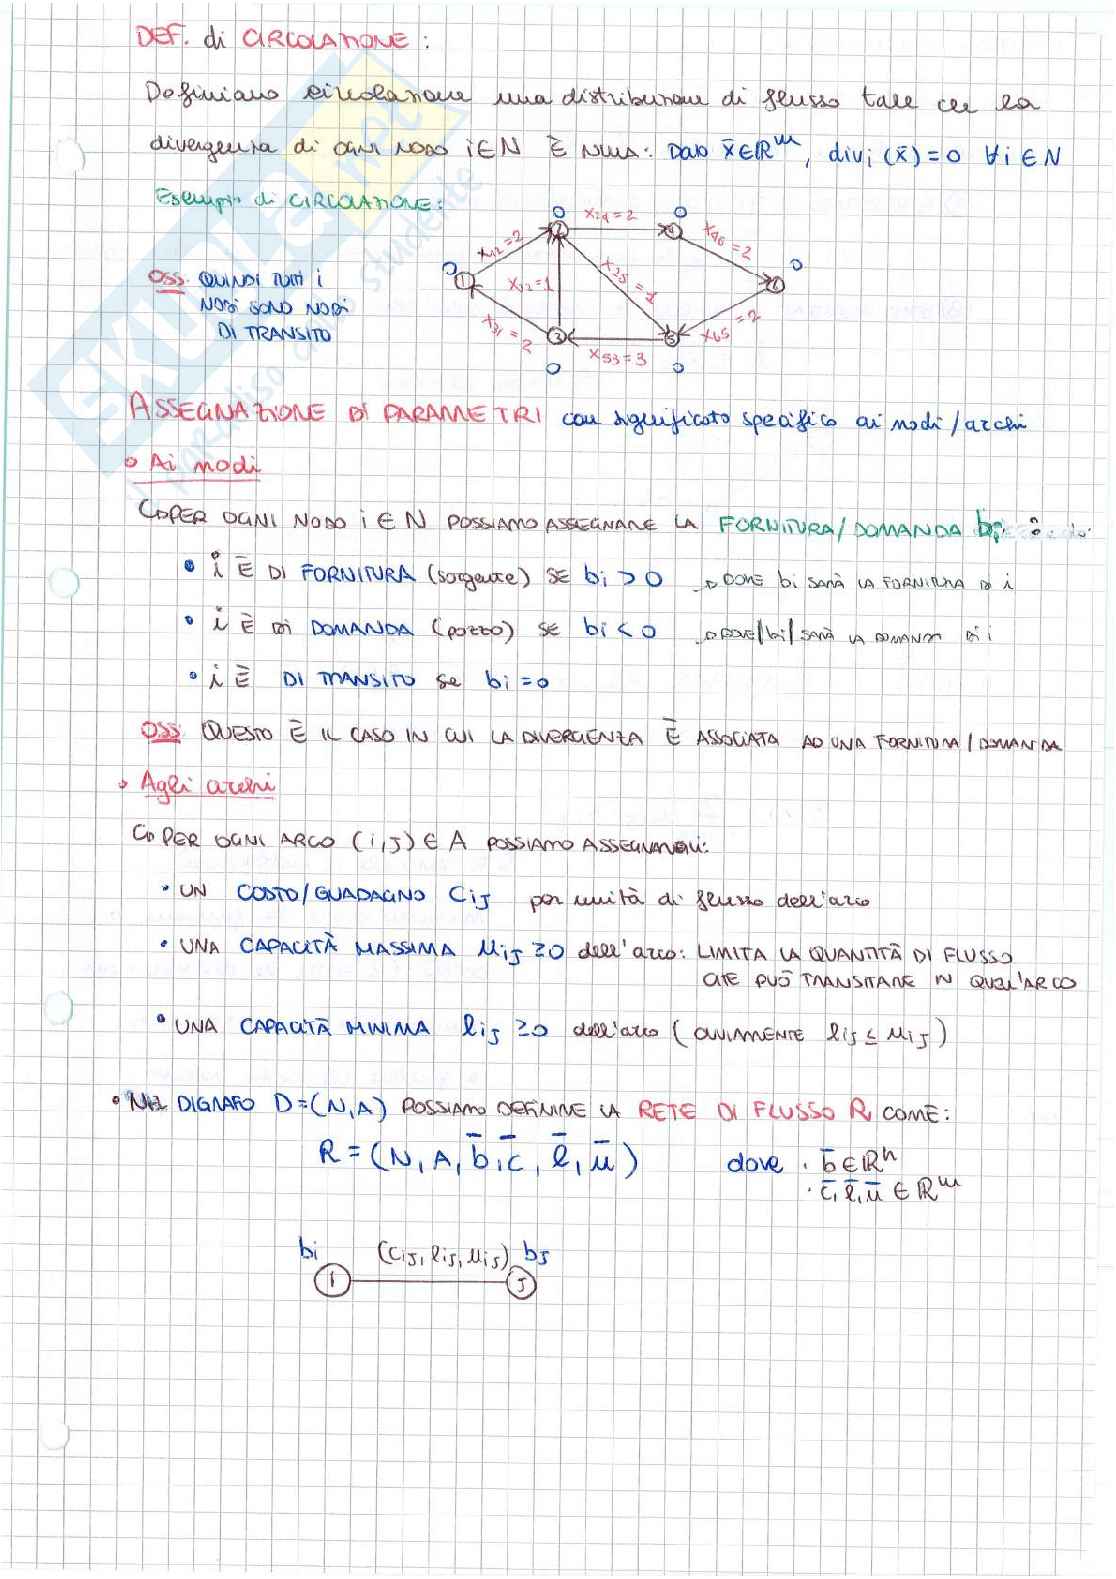 DEF. di CIRCOLAZIONE:
Definiamo circolazione una distribuzione di flusso tale che la
divergenza di ogni nodo i∈N È NULLA: DATO x̄∈ℝᵐ, divᵢ(x̄)=0 ∀i∈N
Esempio di CIRCOLAZIONE:
OSS. QUINDI TUTTI I
NODI SONO NODI
DI TRANSITO
0 x₂₄=2 0
x₁₂=2 2 4 x₄₆=2
0 1 x₃₂=1 x₂₅=1 6 0
x₃₁=2 3 x₅₃=3 5 x₆₅=2
0 0
ASSEGNAZIONE DI PARAMETRI con significato specifico ai nodi/archi
Ai nodi
PER OGNI NODO i∈N POSSIAMO ASSEGNARE LA FORNITURA/DOMANDA bᵢ
• i È DI FORNITURA (sorgente) SE bi>0 DOVE bi SARÀ LA FORNITURA DI i
• i È DI DOMANDA (pozzo) SE bi<0 DOVE |bi| SARÀ LA DOMANDA DI i
• i È DI TRANSITO se bi=0
OSS. QUESTO È IL CASO IN CUI LA DIVERGENZA È ASSOCIATA AD UNA FORNITURA/DOMANDA
Agli archi
PER OGNI ARCO (i,j)∈A POSSIAMO ASSEGNARGLI:
• UN COSTO/GUADAGNO Cij per unità di flusso dell'arco
• UNA CAPACITÀ MASSIMA uij≥0 dell'arco: LIMITA LA QUANTITÀ DI FLUSSO
CHE PUÒ TRANSITARE IN QUELL'ARCO
• UNA CAPACITÀ MINIMA lij≥0 dell'arco (OVVIAMENTE lij≤uij)
• NEL DIGRAFO D=(N,A) POSSIAMO DEFINIRE LA RETE DI FLUSSO R COME:
R=(N,A,b̄,c̄,l̄,ū) dove • b̄∈ℝⁿ
• c̄,l̄,ū∈ℝᵐ
bi (cij,lij,uij) bj
i j
EXTRA